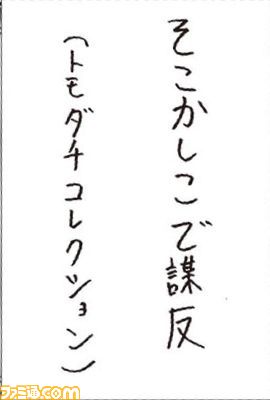 そこかしこで謀反
(トモダチコレクション)
ファミ通.com